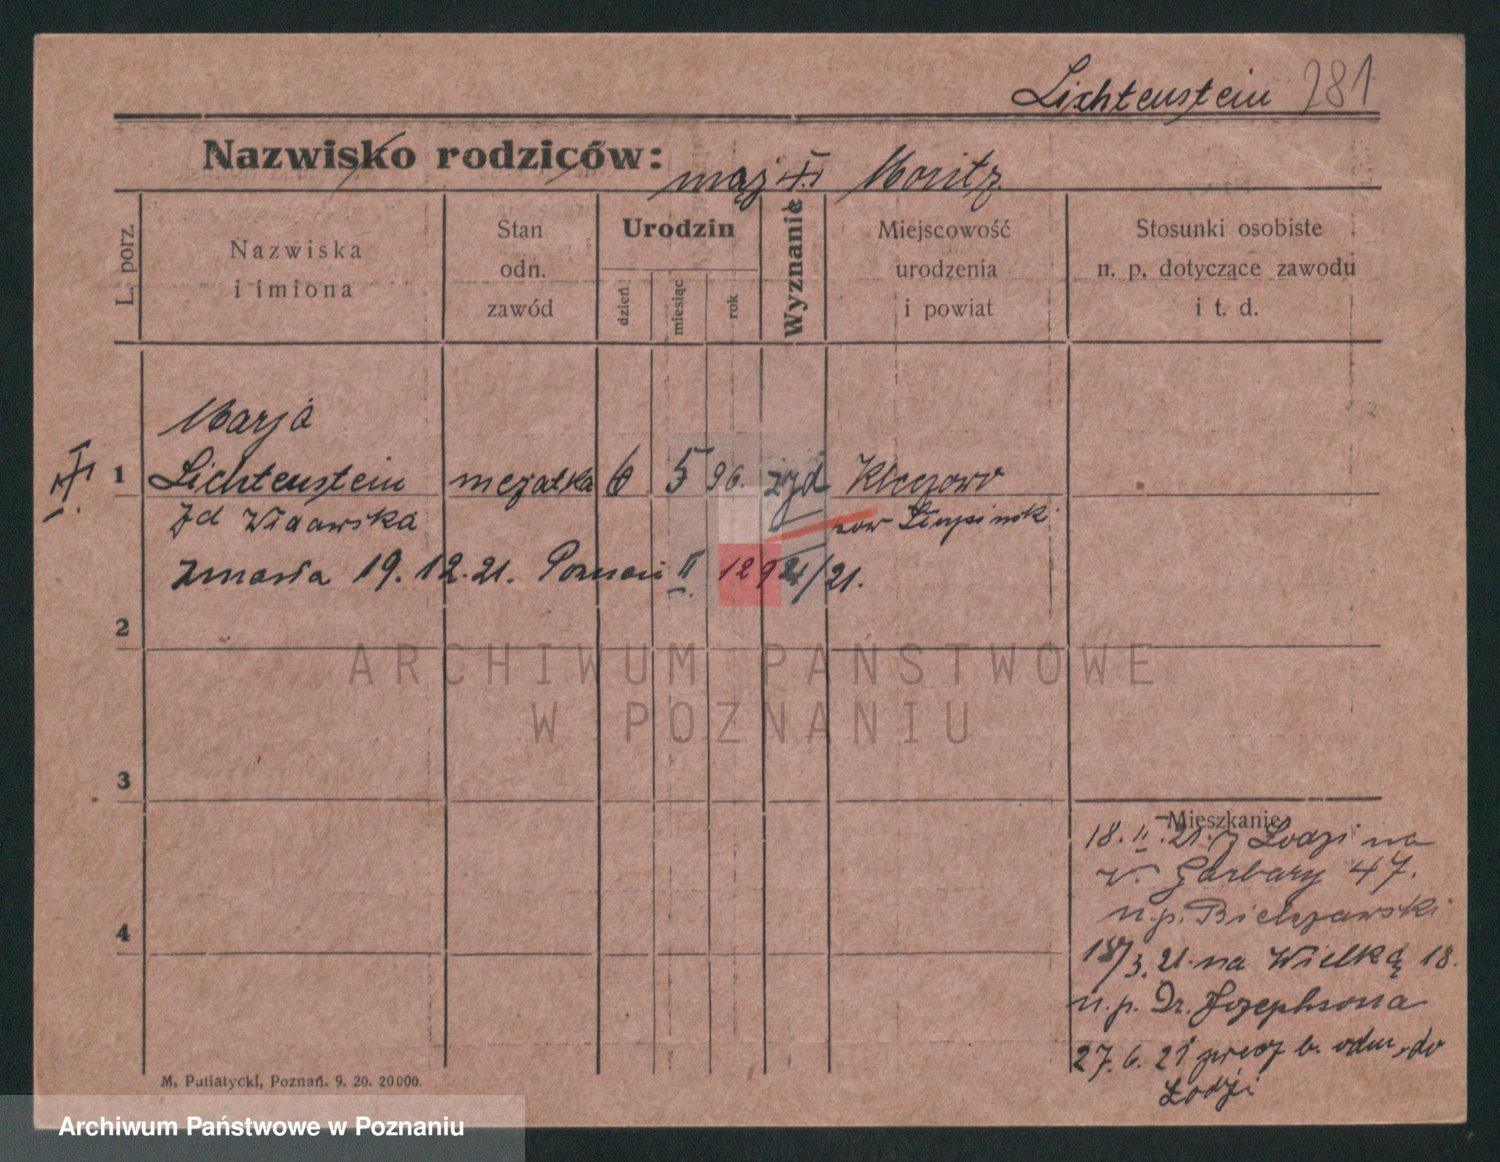 Lichtenstein 281
Nazwisko rodziców: mąż Moritz
L. porz.
Nazwiska
i imiona
Stan
odn.
zawód
Urodzin
dzień
miesiąc
rok
Wyznanie
Miejscowość
urodzenia
i powiat
Stosunki osobiste
n. p. dotyczące zawodu
i t. d.
Marja
1 Lichtenstein mężatka 6 5 96. żyd Kleczewo
zd Widawska pow Słupiński
zmarła 19.12.21. Poznań II 1292/21.
2
ARCHIWUM PAŃSTWOWE
W POZNANIU
3
Mieszkanie
18.II.21. z Łodzi na
W. Garbary 47.
4
n.p. Bielszawski
18/3.21 na Wielką 18.
n.p. Dr. Jozephsona
27.6.21 precz b. odm. do
Łodzi
M. Putiatycki, Poznań. 9. 20. 20000.
Archiwum Państwowe w Poznaniu